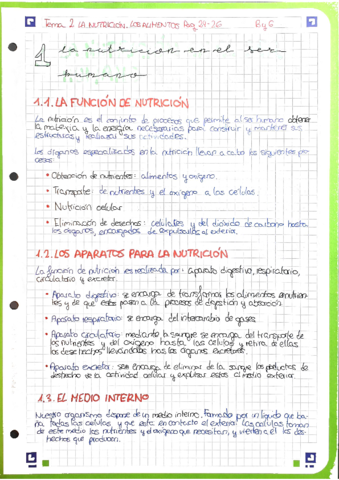 Tema 2 LA NUTRICIÓN. LOS ALIMENTOS Pag 24-36 ByG
1 La nutrición en el ser
humano
1.1. LA FUNCIÓN DE NUTRICIÓN
La nutrición es el conjunto de procesos que permite al ser humano obtener
la materia y la energía necesarias para construir y mantener sus
estructuras y realizar sus actividades.
Los órganos especializados en la nutrición llevan a cabo los siguientes pro
cesos:
• Obtención de nutrientes: alimentos y oxígeno.
• Transporte: de nutrientes y el oxígeno a las células.
• Nutrición celular
• Eliminación de desechos: celulares y del dióxido de carbono hasta
los órganos, encargados de expulsarlos al exterior.
1.2. LOS APARATOS PARA LA NUTRICIÓN
La función de nutrición es realizada por: aparato digestivo, respiratorio,
circulatorio y excretor.
• Aparato digestivo se encarga de transformar los alimentos en nutrien-
tes y de que estos pasen a la procesos de digestión y absorción.
• Aparato respiratorio: se encarga del intercambio de gases.
• Aparato circulatorio mediante la sangre se encarga del transporte de
los nutrientes y del oxígeno hasta las células y retira de ellas
los desechos llevándolos hasta los órganos excretores.
• Aparato excretor: se encarga de eliminar de la sangre los productos de
desecho de la actividad celular y expulsar estos al medio exterior.
1.3. EL MEDIO INTERNO
Nuestro organismo dispone de un medio interno, formado por un líquido que ba-
ña todas las células y que está en contacto el exterior. Las células toman
de este medio los nutrientes y el oxígeno que necesitan, y vierten a él los des-
hechos que producen.